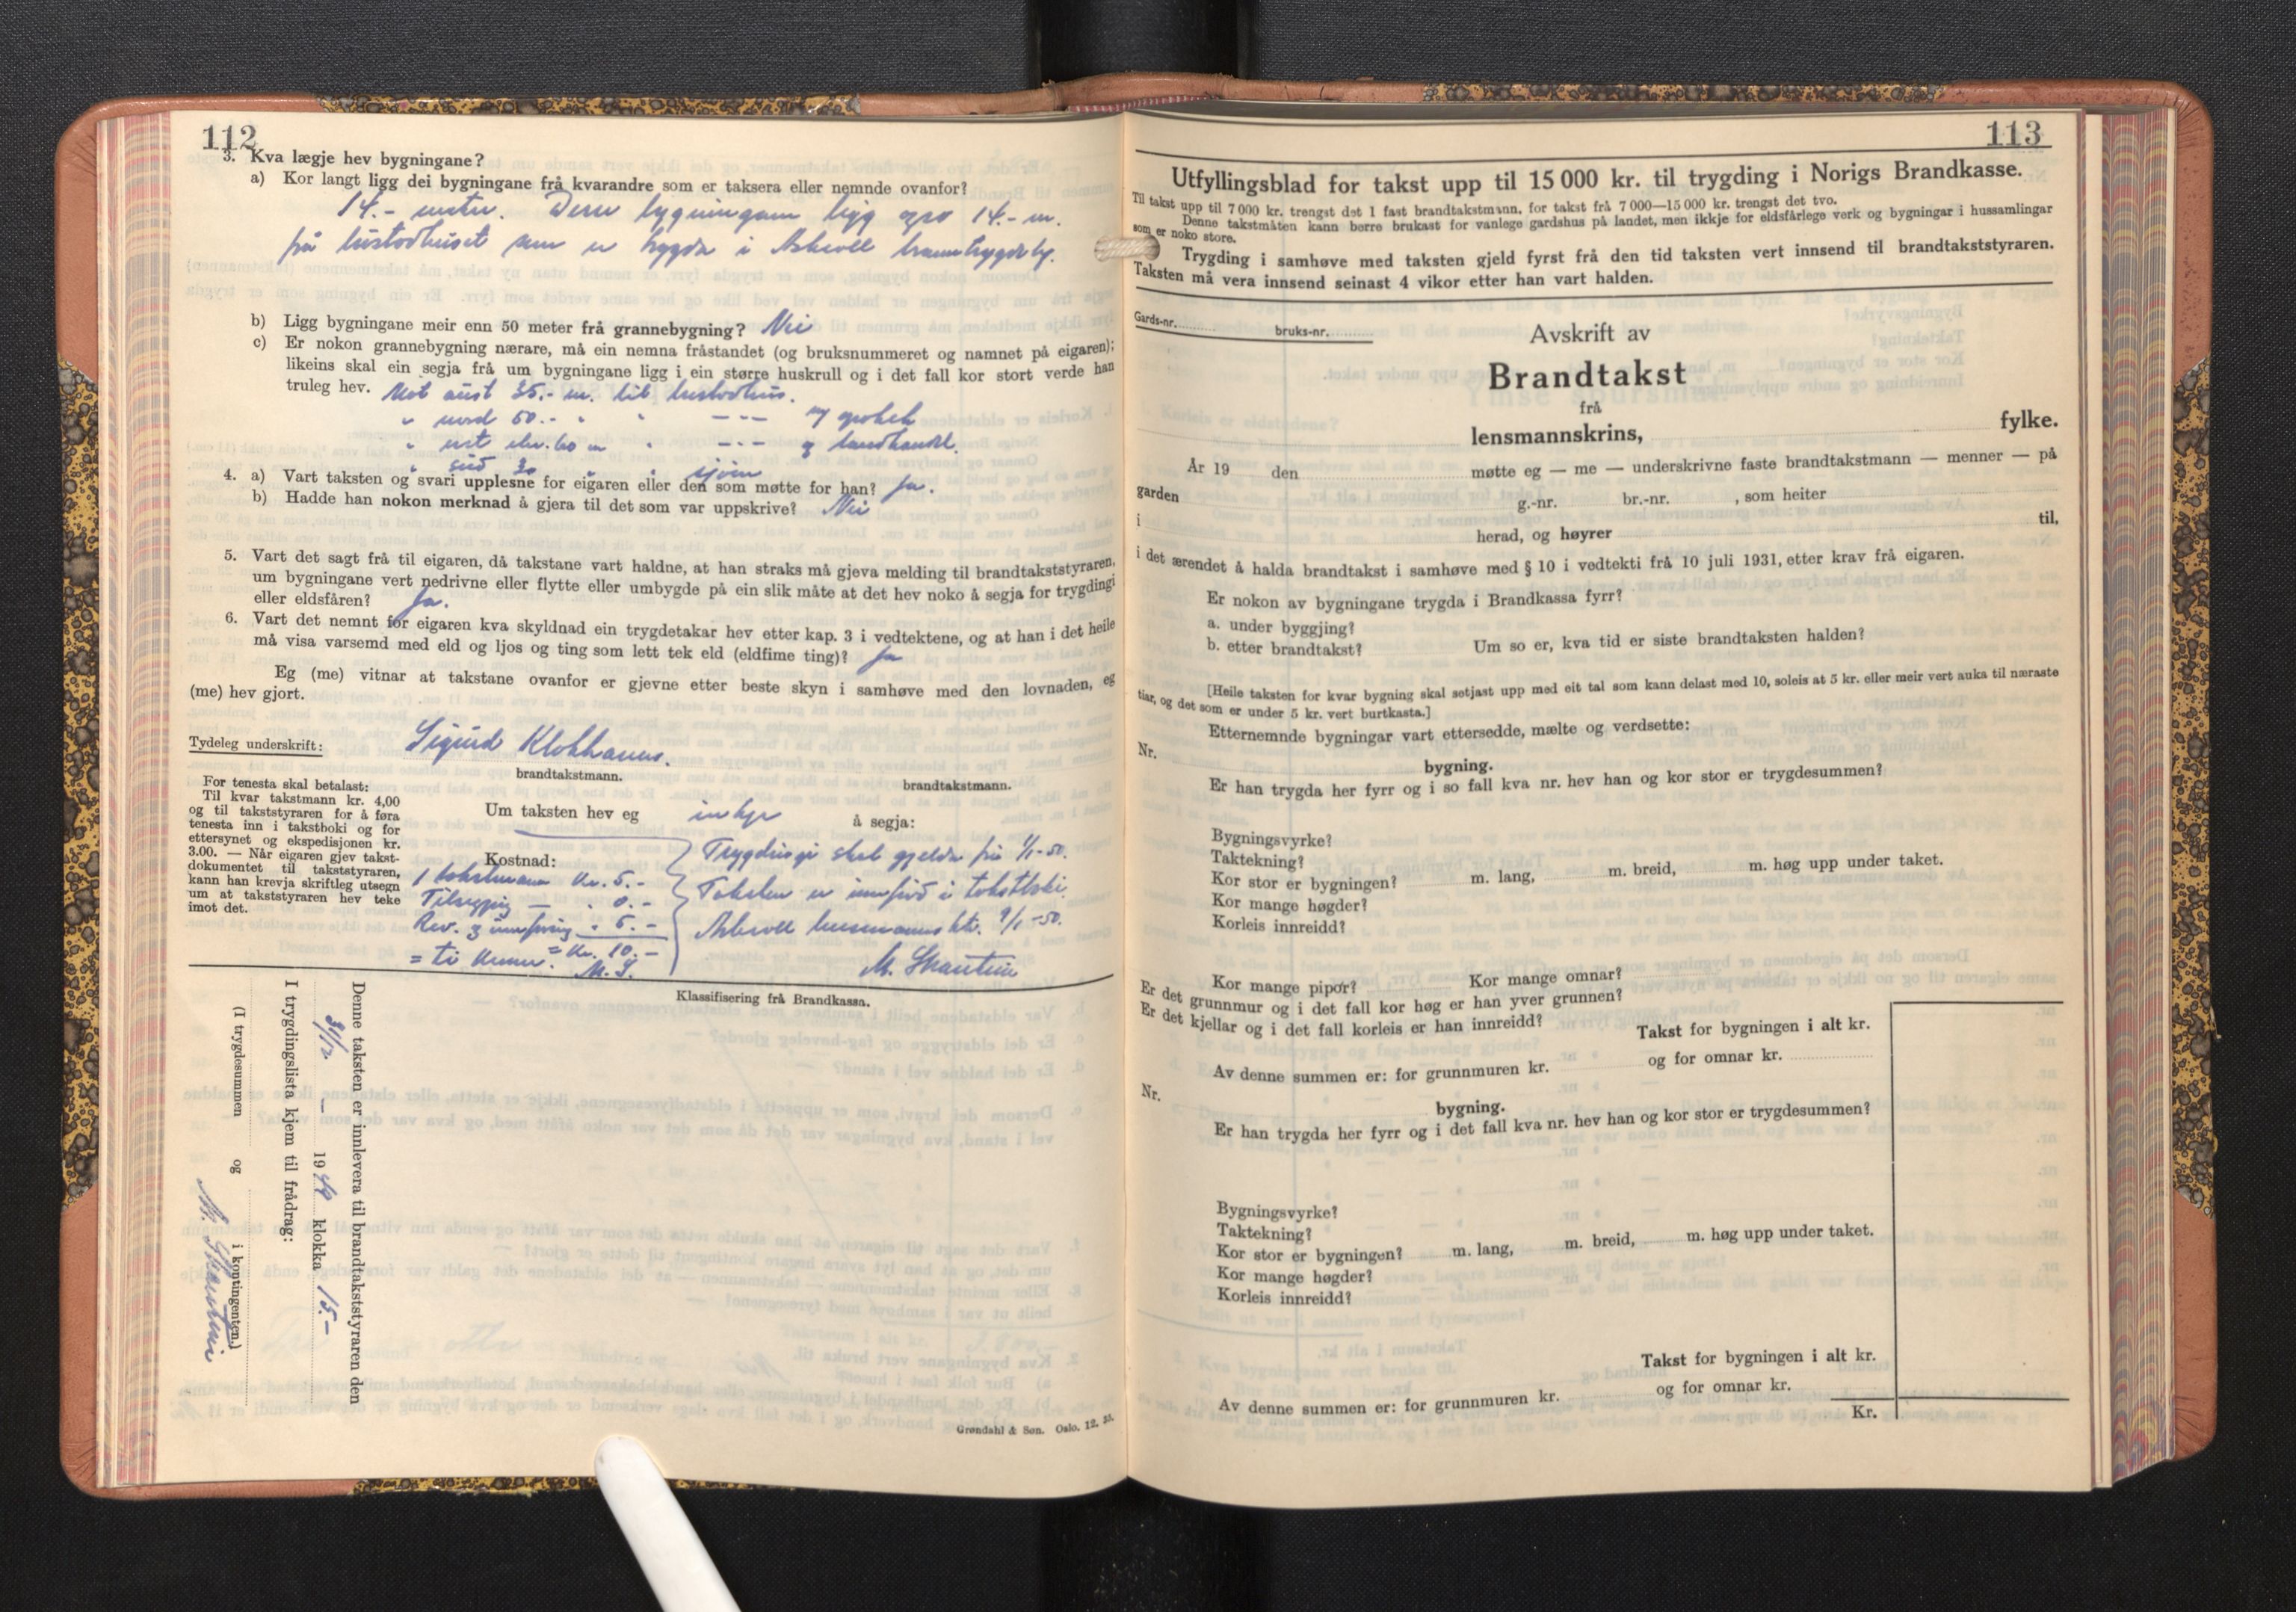 112
3. Kva lægje hev bygningane?
a) Kor langt ligg dei bygningane frå kvarandre som er taksera eller nemnde ovanfor?
14.- meter. Desse bygningane ligg 14.- m.
frå bustadhuset som er bygda i Askvoll branntrygdelag.
b) Ligg bygningane meir enn 50 meter frå grannebygning? Nei
c) Er nokon grannebygning nærare, må ein nemna fråstandet (og bruksnummeret og namnet på eigaren);
likeins skal ein segja frå um bygningane ligg i ein større huskrull og i det fall kor stort verde han
truleg hev. Mot aust 35.- m. til bustadhus.
" nord 50.- " " -- og apotek
" vest " 60 m " -- og landhandel.
" sud 30 " " sjøen
4. a) Vart taksten og svari upplesne for eigaren eller den som møtte for han? Ja.
b) Hadde han nokon merknad å gjera til det som var uppskrive? Nei
5. Vart det sagt frå til eigaren, då takstane vart haldne, at han straks må gjeva melding til brandtakststyraren,
um bygningane vert nedrivne eller flytte eller umbygde på ein slik måte at det hev noko å segja for trygdingi
eller eldsfåren? Ja.
6. Vart det nemnt for eigaren kva skyldnad ein trygdetakar hev etter kap. 3 i vedtektene, og at han i det heile
må visa varsemd med eld og ljos og ting som lett tek eld (eldfime ting)? Ja
Eg (me) vitnar at takstane ovanfor er gjevne etter beste skyn i samhøve med den lovnaden, eg
(me) hev gjort.
Tydeleg underskrift: Sigurd Klokkarnes.
brandtakstmann. brandtakstmann.
For tenesta skal betalast:
Til kvar takstmann kr. 4,00
og til takststyraren for å føra
tenesta inn i takstboki og for
ettersynet og ekspedisjonen kr.
3.00. — Når eigaren gjev takst-
dokumentet til takststyraren,
kann han krevja skriftleg utsegn
um at takststyraren hev teke
imot det.
Um taksten hev eg inkje å segja:
Kostnad:
1 takstmann kr. 5.-
Tilsyging — " 0.-
Rev. og innføring " 5.-
= ti kroner = Kr. 10.-
M. S.
Trygdingi skal gjelda frå 1/1-50.
Taksten er innførd i takstboki.
Askvoll lensmannsktr. 9/1-50.
M. Skarstein
Klassifisering frå Brandkassa.
Denne taksten er innlevera til brandtakststyraren den
31/12 — 1949 klokka 15.-
I trygdingslista kjem til frådrag:
(I trygdesummen og i kontingenten.)
M. Skarstein
Grøndahl & Søn. Oslo. 12. 35.
113
Utfyllingsblad for takst upp til 15 000 kr. til trygding i Norigs Brandkasse.
Til takst upp til 7 000 kr. trengst det 1 fast brandtakstmann, for takst frå 7 000—15 000 kr. trengst det tvo.
Denne takstmåten kann berre brukast for vanlege gardshus på landet, men ikkje for eldsfårlege verk og bygningar i hussamlingar
som er noko store.
Trygding i samhøve med taksten gjeld fyrst frå den tid taksten vert innsend til brandtakststyraren.
Taksten må vera innsend seinast 4 vikor etter han vart halden.
Gards-nr. bruks-nr.
Avskrift av
Brandtakst
frå
lensmannskrins, fylke.
År 19 den møtte eg — me — underskrivne faste brandtakstmann — menner — på
garden g.-nr. br.-nr. , som heiter
i herad, og høyrer til,
i det ærendet å halda brandtakst i samhøve med § 10 i vedtekti frå 10 juli 1931, etter krav frå eigaren.
Er nokon av bygningane trygda i Brandkassa fyrr?
a. under byggjing?
b. etter brandtakst? Um so er, kva tid er siste brandtaksten halden?
[Heile taksten for kvar bygning skal setjast upp med eit tal som kann delast med 10, soleis at 5 kr. eller meir vert auka til næraste
tiar, og det som er under 5 kr. vert burtkasta.]
Etternemnde bygningar vart ettersedde, mælte og verdsette:
Nr. bygning.
Er han trygda her fyrr og i so fall kva nr. hev han og kor stor er trygdesummen?
Bygningsvyrke?
Taktekning?
Kor stor er bygningen? m. lang, m. breid, m. høg upp under taket.
Kor mange høgder?
Korleis innreidd?
Kor mange pipor? Kor mange omnar?
Er det grunnmur og i det fall kor høg er han yver grunnen?
Er det kjellar og i det fall korleis er han innreidd?
Takst for bygningen i alt kr.
Av denne summen er: for grunnmuren kr. og for omnar kr.
Nr. bygning.
Er han trygda her fyrr og i det fall kva nr. hev han og kor stor er trygdesummen?
Bygningsvyrke?
Taktekning?
Kor stor er bygningen? m. lang, m. breid, m. høg upp under taket.
Kor mange høgder?
Korleis innreidd?
Takst for bygningen i alt kr.
Av denne summen er: for grunnmuren kr. og for omnar kr.
Kr.